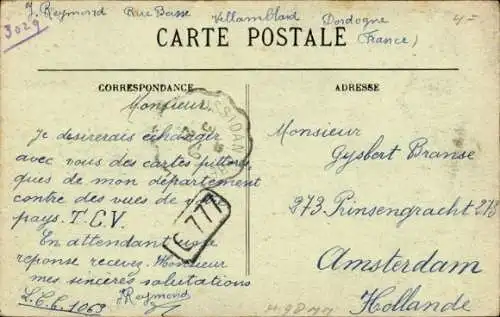 J. Reymond Rue Basse Villamblard Dordogne
(France)
3029
4=
CARTE POSTALE
CORRESPONDANCE
ADRESSE
Monsieur
Je desirerais echanger
avec vous des cartes pittores,
ques de mon département
contre des vues de votre
pays. T.C.V.
En attendant une
reponse recevez Monsieur
mes sincères salutations
JReymond
L.C.C. 1063
C 777
Monsieur
Gysbert Branse
973 Prinsengracht 278
Amsterdam
Hollande